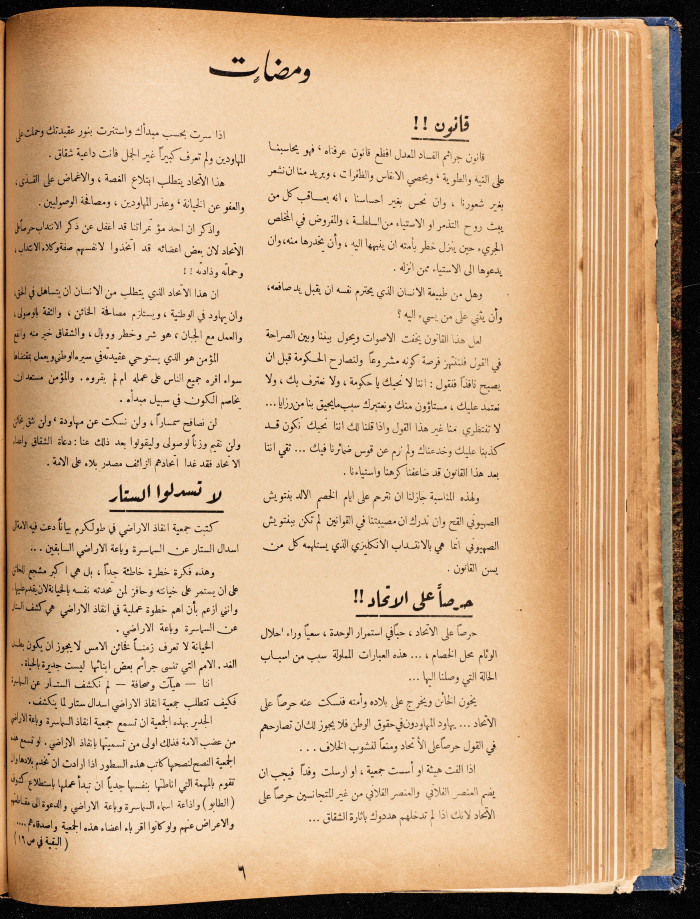 ومضات
قانون !!
قانون جرائم الفساد المعدل افظع قانون عرفناه ، فهو يحاسبنا
على النية والطوية ، ويحصي الانفاس والخطرات ، ويريد منا ان نشعر
بغير شعورنا ، وان نحس بغير احساسنا ، انه يعاقب كل من
يبث روح التذمر او الاستياء من السلطة ، والمفروض في المخلص
الجريء حين ينزل خطر بأمته ان ينبهها اليه ، وأن يحذرها منه، وان
يدعوها الى الاستياء ممن انزله .
وهل من طبيعة الانسان الذي يحترم نفسه ان يقبل يد صافعه،
وأن يثني على من يسيء اليه ؟
لعل هذا القانون يخفت الاصوات ويحول بيننا وبين الصراحة
في القول فلننتهز فرصة كونه مشروعاً ولنصارح الحكومة قبل ان
يصبح نافذاً فنقول : اننا لا نحبك يا حكومة ، ولا نعترف بك ، ولا
نعتمد عليك ، مستاؤون منك ونعتبرك سبب ما يحيق بنا من رزايا ...
لا تنتظري منا غير هذا القول واذا قلنا لك اننا نحبك نكون قد
كذبنا عليك وخدعناك ولم نرم عن قوس ضمائرنا فيك ... ثقي اننا
بعد هذا القانون قد ضاعفنا كرهنا واستياءنا .
ولهذه المناسبة جاز لنا ان نترحم على ايام الخصم الالد بنتويش
الصهيوني القح وان ندرك ان مصيبتنا في القوانين لم تكن ببنتويش
الصهيوني انما هي بالانتداب الانكليزي الذي يستلهمه كل من
يسن القانون .
حرصاً على الاتحاد !!
حرصاً على الاتحاد ، حباً في استمرار الوحدة ، سعياً وراء احلال
الوئام محل الخصام ، ... هذه العبارات المملولة سبب من اسباب
الحالة التي وصلنا اليها ...
يخون الخائن ويخرج على بلاده وأمته فنسكت عنه حرصاً على
الاتحاد ... يهاود المهاودون في حقوق الوطن فلا يجوز لك ان تصارحهم
في القول حرصاً على الاتحاد ومنعاً لنشوب الخلاف ...
اذا الفت هيئة او أسست جمعية ، او ارسلت وفداً فيجب ان
يضم العنصر الفلاني والعنصر الفلاني من غير المتجانسين حرصاً على
الاتحاد لانك اذا لم تدخلهم هددوك باثارة الشقاق ...
اذا سرت بحسب مبدأك واستنرت بنور عقيدتك وحملت على
المهاودين ولم تعرف كبيراً غير الجمل فانت داعية شقاق .
هذا الاتحاد يتطلب ابتلاع الغصة ، والاغماض على القذى ،
والعفو عن الخيانة ، وعذر المهاودين ، ومصالحة الوصوليين .
واذكر ان احد مؤتمراتنا قد اغفل عن ذكر الانتداب حرصاً على
الاتحاد لان بعض اعضائه قد اتخذوا لانفسهم صفة وكلاء الانتداب ،
وحماته وذادته !!
ان هذا الاتحاد الذي يتطلب من الانسان ان يتساهل في الحق،
وان يهاود في الوطنية ، ويستلزم مصافحة الخائن ، والثقة بالوصولي،
والعمل مع الجبان ، هو شر وخطر ووبال ، والشقاق خير منه وانفع
المؤمن هو الذي يستوحي عقيدته في سيره الوطني ويعمل بمقتضاها
سواء اقره جميع الناس على عمله ام لم يقروه . والمؤمن مستعد ان
يخاصم الكون في سبيل مبدأه .
لن نصافح سمساراً ، ولن نسكت عن مهاودة ، ولن نثق بخائن
ولن نقيم وزناً لوصولي وليقولوا بعد ذلك عنا : دعاة الشقاق واعداء
الاتحاد فقد غدا اتحادهم الزائف مصدر بلاء على الامة .
لا تسدلوا الستار
كتبت جمعية انقاذ الاراضي في طولكرم بياناً دعت فيه الاهالي
اسدال الستار عن السماسرة وباعة الاراضي السابقين ...
وهذه فكرة خطرة خاطئة جداً ، بل هي اكبر مشجع للخائن
على ان يستمر على خيانته وحافز لمن تحدثه نفسه بالخيانة لان يقدم عليها ،
وانني ازعم بأن اهم خطوة عملية في انقاذ الاراضي هي كشف الستار
عن السماسرة وباعة الاراضي .
الخيانة لا تعرف زمناً فخائن الامس لا يجوز ان يكون بطل
الغد . الامم التي تنسى جرائم بعض ابنائها ليست جديرة بالحياة .
اننا – هيآت وصحافة – لم نكشف الستار عن السماسرة
فكيف تتطلب جمعية انقاذ الاراضي اسدال ستار لما ينكشف .
الجدير بهذه الجمعية ان تسمع جمعية انقاذ السماسرة وباعة الاراضي
من غضب الامة فذلك اولى من تسميتها بانقاذ الاراضي . او تسمع هذه
الجمعية النصح لنصحها كاتب هذه السطور اذا ارادت ان تخدم بلادها وان
تقوم بالمهمة التي اناطتها بنفسها جدياً ان تبدأ عملها باستطلاع كشوف
( الطابو ) واذاعة اسماء السماسرة وباعة الاراضي والدعوة الى مقاطعتهم
والاعراض عنهم ولو كانوا اقرباء اعضاء هذه الجمعية واصدقاءهم ....
( البقية في ص ١٦ )
٦